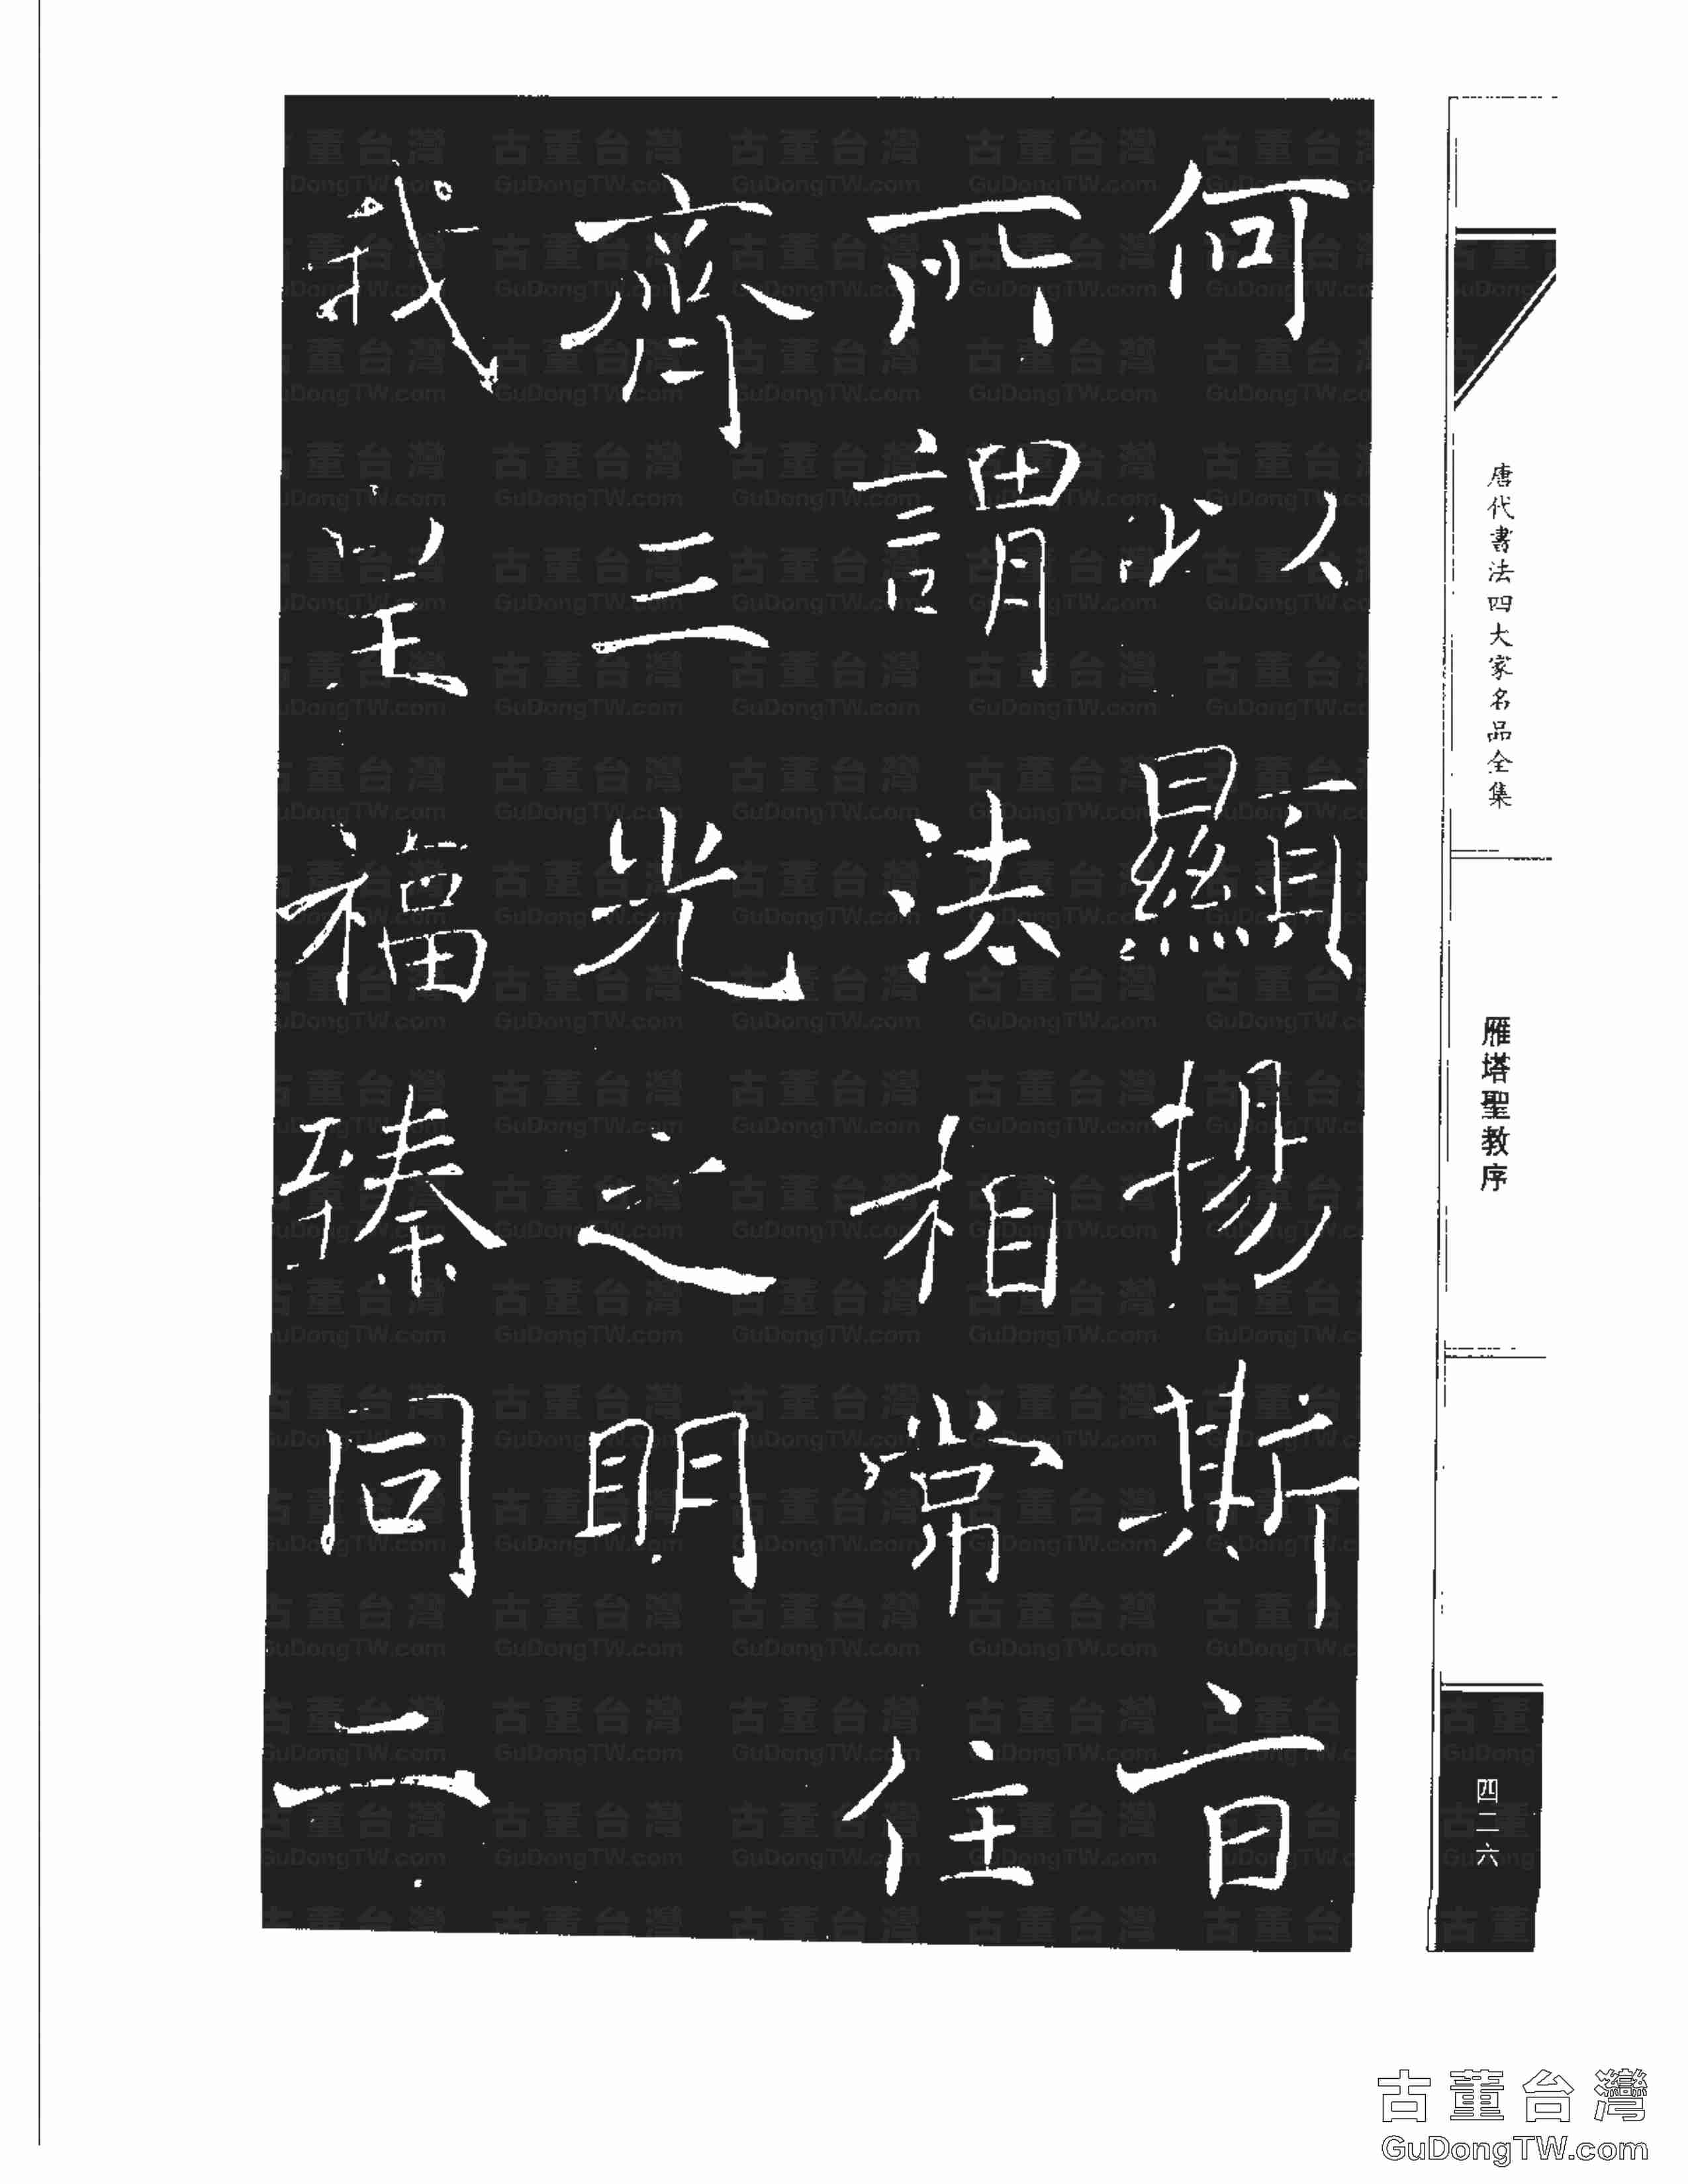 唐代書法四大家名品全集
雁塔聖教序
四二六
何以顯揚斯旨
所謂法相常住
齊三光之明
我皇福臻同二
古董台灣
GuDongTW.com